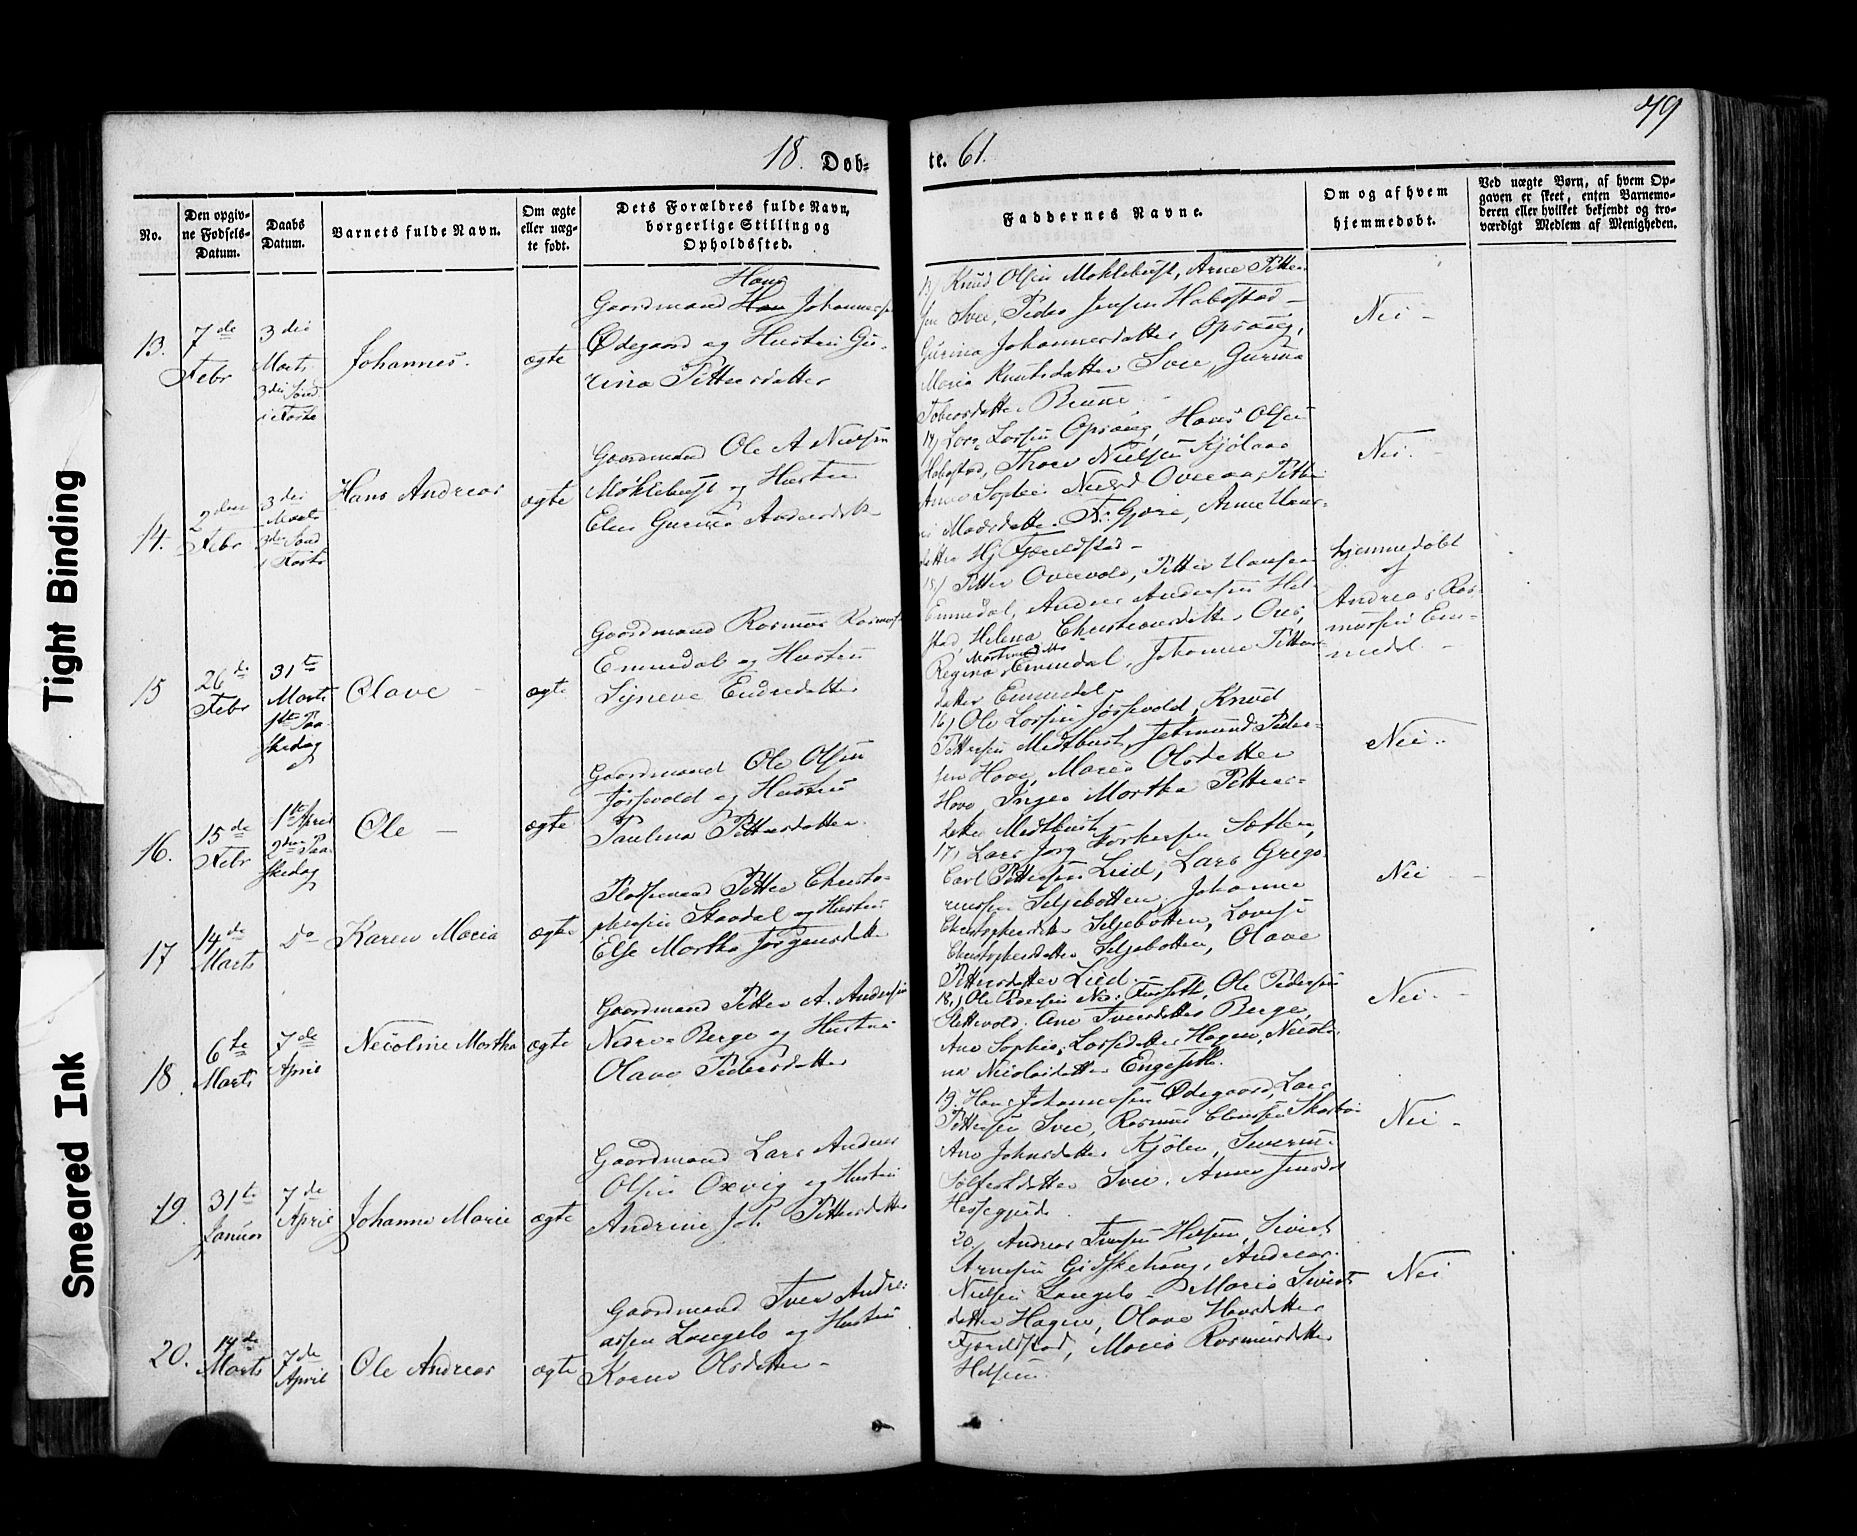 79
18. Døb=
te. 61.
No.
Den opgiv-
ne Fødsels-
Datum.
Daabs
Datum.
Barnets fulde Navn.
Om ægte
eller uæg-
te født.
Dets Forældres fulde Navn,
borgerlige Stilling og
Opholdssted.
Faddernes Navne.
Om og af hvem
hjemmedøbt.
Ved uægte Børn, af hvem Op-
gaven er skeet, enten Barnemo-
deren eller hvilket bekjendt og tro-
værdigt Medlem af Menigheden.
13.
7de
Febr
3die
Marts
3die Sønd
i Faste
Johannes.
ægte
Hans
Gaardmand Han Johannes
Ødegaard og Hustru Gu-
rina Pettersdatter
13) Knud Olsen Moklebust, Arne Petter
sen Svee, Peder Jensen Habostad
Gurina Johannesdatter Opsang,
Maria Knutsdatter Svee, Gurina
Tobiasdatter Brune
Nei
14.
2den
Febr
3die
Marts
3die Sønd
i Faste
Hans Andreas
ægte
Gaardmand Ole A Nielsen
Møklebust og Hustru
Elen Gurina Andersdtr
14) Lars Larsen Opsang, Hans Olsen
Habostad, Thore Nielsen Kjølaas
Anne Sophie Nielsd Overaa, Petri
Madsdatter Gjøre, Anne Hans
datter Hj Fjeldstad
Nei
15
26de
Febr
31te
Marts
1ste Paa
skedag
Olave
ægte
Gaardmand Rasmus Rasmus
Emmedal og Hustru
Synneve Endredatter
15) Petter Overvold, Petter Hansen
Emmedal, Andreas Andersen Hel
stad, Helena Christiansdatter Ous,
Regina Emmedal, Johanne Petters
datter Emmedal
hjemmedøbt
af
Andreas Ras
mussen Em-
medal
16.
15de
Febr
1ste April
2den Paa
skedag
Ole
ægte
Gaardmand Ole Olsen
Jørsevold og Hustru
Paulina Pettersdatter.
16) Ole Larsen Jørsevold, Knud
Pettersen Medtbust, Jetmund Peder-
sen Hove, Maria Olsdatter
Hove, Inger Martha Petters-
datter Medtbust
Nei
17
14de
Marts
Do
Karen Maria
ægte
Pladsmand Petter Christo-
phersen Standal og Hustru
Else Martha Jørgensdtr
17) Lars Jørg Torkersen Sætter,
Carl Pettersen Lied, Lars Grego
riussen Seljebotten, Johanne
Christophersdatter Seljebotten, Lovise
Christophersdatter Seljebotten, Olave
Pettersdatter Lied.
Nei
18
6te
Marts
7de
April
Nicoline Martha
ægte
Gaardmand Petter A. Andersen
Nedre Berge og Hustru
Olave Pedersdatter
18) Ole Larsen Ne: Furseth, Ole Pedersen
Slettevold, Ane Iversdatter Berge,
Ane Sophie Larsdatter Hagen, Nicoli
na Nicolaidatter Engeseth.
Nei
19.
31te
Januar
7de
April
Johanne Marie
ægte
Gaardmand Lars Andreas
Olsen Oxvig og Hustru
Andrine Joh Pettersdatter
19. Hans Johannesen Ødegaard, Lars
Pettersen Svee, Rasmus Clausen Skarbø
Ane Johnsdatter Kjølen, Severine
Sølfestdatter Svee, Anne Jensdtr
Hessegjerde
Nei
20.
14de
Marts
7de
April
Ole Andreas
ægte
Gaardmand Iver Andre
assen Langelo og Hustru
Karen Olsdatter
20) Andreas Iversen Helsem, Sivert
Arnesen Gidskehaug, Andreas
Nielsen Langelo, Maria Siverts
datter Hagen, Olave Hansdatter
Fjeldstad, Maria Rasmusdatter
Helsem.
Nei
Tight Binding
Smeared Ink